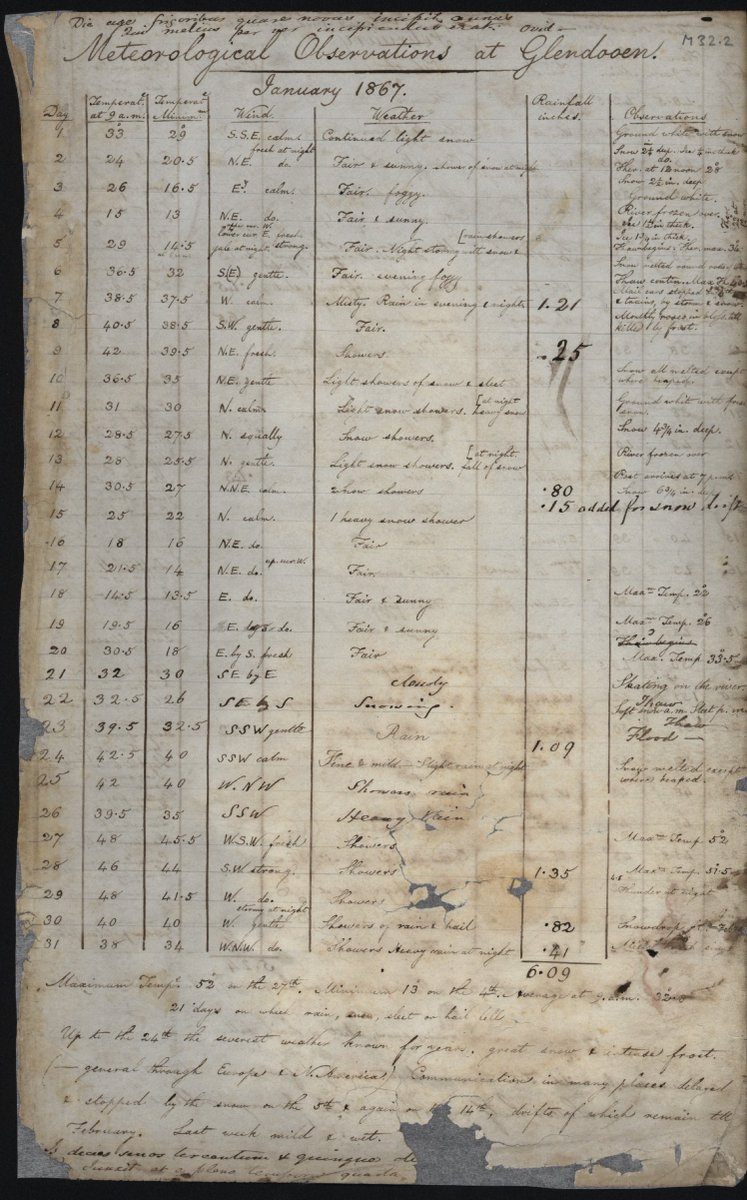 Die age frigoribus quare novus incipit annus
Qui melius per ver incipiendus erat. Ovid
M32.2
Meteorological Observations at Glendooen.
January 1867.
Day Temperat.e at 9 a.m. Temperat.e Minim.m Wind. Weather Rainfall inches. Observations
1 33° 29° S.S.E. calm. fresh at night Continued light snow Ground white with snow
2 24 20.5 N.E. do. Fair & sunny. shower of snow at night Ther. at 12 noon 28
3 26 16.5 E.y calm. Fair. foggy. Snow 2½ in. deep Ground white.
4 15 13 N.E. do. Fair & sunny. River frozen over.
5 29 14.5 lower cur E. fresh gale at night. strong. Fair. Night strong with snow & [rain showers Ice 1¾ in thick. Thaw begins. Ther. max. 34
6 36.5 32 S(E) gentle. Fair. evening foggy Thaw contin. Max
7 38.5 37.5 W. calm. Misty. Rain in evening & night. 1.21 Mail cars stopped & trains, by storm & snow.
8 40.5 38.5 S.W. gentle. Fair. Monthly roses in blossom till killed by frost.
9 42 39.5 N.E. fresh. Showers. .25
10 36.5 35 N.E. gentle Light showers of snow & sleet Snow all melted except where heaped.
11 31 30 N. calm Light snow showers. [at night heavy snow Ground white with snow.
12 28.5 27.5 N. squally Snow showers. Snow 4¾ in. deep.
13 28 25.5 N. gentle. Light snow showers. [at night. fall of snow River frozen over
14 30.5 27 N.N.E. calm. Snow showers .80 Post arrives at 7 p.m. Snow 6¾ in. deep
15 25 22 N. calm. 1 heavy snow shower .15 added for snow drift
16 18 16 N.E. do. Fair
17 21.5 14 N.E. do. up. cur. W. Fair
18 14.5 13.5 E. do. Fair & sunny Max.m Temp. 22
19 19.5 16 E. do. Fair & sunny Max.m Temp. 26
20 30.5 18 E. by S. fresh Fair Thaw begins Max. Temp 33.5
21 32 30 SE by E cloudy Skating on the river
22 32.5 26 SE by S Snowing. Thaw Soft snow a.m. Sleet p.m.
23 39.5 32.5 SSW gentle Rain Thaw Flood
24 42.5 40 SSW calm Fine & mild — Slight rain at night 1.09
25 42 40 W.NW Showers rain Snow melted except where heaped.
26 39.5 35 SSW Heavy Rain
27 48 45.5 W.S.W. fresh Showers Max.m Temp 52
28 46 44 S.W strong. Showers 1.35 Max.m Temp. 51.5 Thunder at night
29 48 41.5 W. do. Showers
30 40 40 strong at night W. gentle Showers of rain & hail .82 Snowdrop
31 38 34 W.N.W. do. Showers Heavy rain at night .41
6.09
Maximum Temp.e 52 on the 27th. Minimum 13 on the 4th. Average at 9 a.m. 32
21 days on which rain, snow, sleet or hail fell
Up to the 24th the severest weather known for years. great snow & intense frost.
(— general through Europe & N. America) Communication in many places delayed
& stopped by the snow on the 5th & again on the 14th, drifts of which remain till
February. Last week mild & wet.